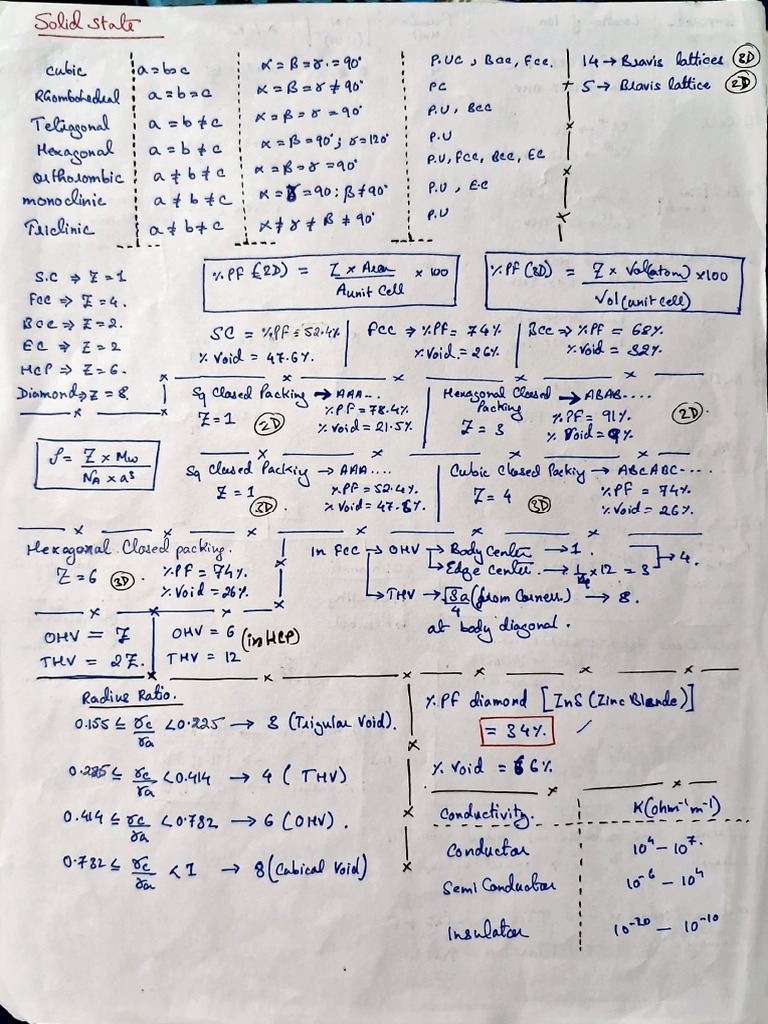 Solid state
cubic a=b=c α=β=γ=90° P.UC, Bcc, Fcc. 14→Bravis lattices (3D)
Rhombohedral a=b=c α=β=γ≠90° PC 5→Bravis lattice (2D)
Tetragonal a=b≠c α=β=γ=90° P.U, BCC
Hexagonal a=b≠c α=β=90°; γ=120° P.U
Orthorombic a≠b≠c α=β=γ=90° P.U, FCC, BCC, EC
monoclinic a≠b≠c α=γ=90; β≠90° P.U, E.C
Triclinic a≠b≠c α≠γ≠β≠90° P.U
S.C ⇒ Z=1
Fcc ⇒ Z=4.
Bcc ⇒ Z=2.
EC ⇒ Z=2
HCP ⇒ Z=6.
Diamond ⇒ Z=8.
%PF (2D) = Z × Area / A unit Cell × 100
%PF (3D) = Z × Vol(atom) / Vol (unit cell) × 100
SC = %PF = 52.4% FCC ⇒ %PF = 74% Bcc ⇒ %PF = 68%
% Void = 47.6%. %Void = 26% % Void = 32%
Sq Closed Packing → AAA...
Z=1 (2D) %PF = 78.4%
% void = 21.5%
Hexagonal Closed Packing → ABAB....
Z = 3 %PF = 91% (2D).
% Void = 9%
ρ = Z × Mw / NA × a³
Sq Closed Packing → AAA....
Z = 1 (3D) %PF = 52.4%
% Void = 47.6%
Cubic Closed Packing → ABCABC....
Z = 4 (3D) %PF = 74%
% Void = 26%
Hexagonal Closed packing.
Z = 6 (3D). %PF = 74%
% Void = 26%
in FCC → OHV → Body Center → 1.
→ Edge center → 1/4 × 12 = 3 → 4.
→ THV → √3a/4 (from Corners) → 8.
at body diagonal.
OHV = Z OHV = 6 (in HCP)
THV = 2Z. THV = 12
Radius Ratio.
0.155 ≤ rc/ra < 0.225 → 3 (Trigular Void).
0.225 ≤ rc/ra < 0.414 → 4 (THV)
0.414 ≤ rc/ra < 0.732 → 6 (OHV).
0.732 ≤ rc/ra < 1 → 8 (Cubical Void)
%PF diamond [ZnS (Zinc Blende)]
= 34%.
% Void = 66%
Conductivity. K (ohm⁻¹ m⁻¹)
Conductor 10⁴ – 10⁷.
Semi Conductor 10⁻⁶ – 10⁴
Insulator 10⁻²⁰ – 10⁻¹⁰